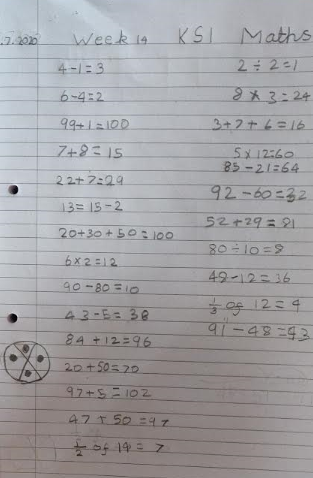 .7.2020 Week 14 KS1 Maths
4-1=3
6-4=2
99+1=100
7+8=15
22+7=29
13=15-2
20+30+50=100
6x2=12
90-80=10
43-5=38
84+12=96
20+50=70
97+5=102
47+50=97
1/2 of 14=7
2÷2=1
8x3=24
3+7+6=16
5x12=60
85-21=64
92-60=32
52+29=81
80÷10=8
48-12=36
1/3 of 12=4
91-48=43